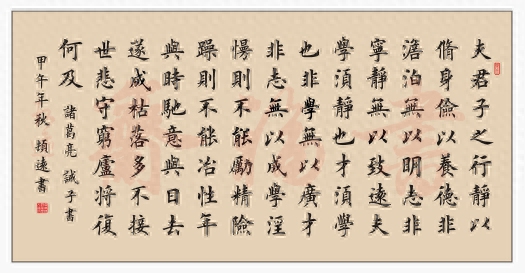 夫君子之行靜以
脩身儉以養德非
澹泊無以明志非
寧靜無以致遠夫
學須靜也才須學
也非學無以廣才
非志無以成學淫
慢則不能勵精險
躁則不能冶性年
與時馳意與日去
遂成枯落多不接
世悲守窮廬將復
何及 諸葛亮 誡子書
甲午年秋 頓遠書